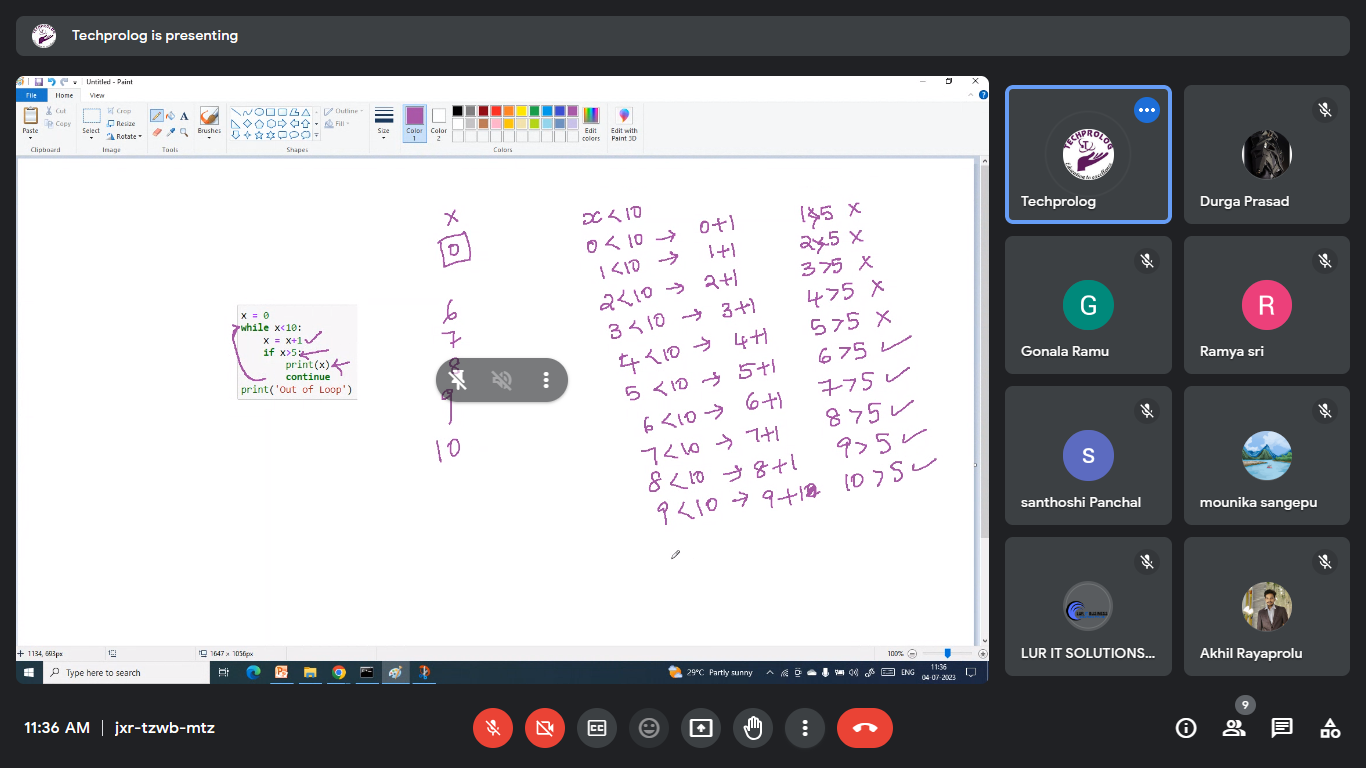 Techprolog is presenting
Untitled - Paint
File Home View
Paste
Cut
Copy
Clipboard
Select
Crop
Resize
Rotate
Image
A
Tools
Brushes
Outline
Fill
Shapes
Size
Color 1
Color 2
Colors
Edit colors
Edit with Paint 3D
x = 0
while x<10:
x = x+1
if x>5:
print(x)
continue
print('Out of Loop')
x
0
6
7
8
9
10
x < 10
0 < 10 → 0+1
1 < 10 → 1+1
2 < 10 → 2+1
3 < 10 → 3+1
4 < 10 → 4+1
5 < 10 → 5+1
6 < 10 → 6+1
7 < 10 → 7+1
8 < 10 → 8+1
9 < 10 → 9+1
1>5 X
2>5 X
3>5 X
4>5 X
5>5 X
6>5 ✓
7>5 ✓
8>5 ✓
9>5 ✓
10>5 ✓
1134, 693px
1647 × 1056px
100%
Type here to search
29°C Partly sunny
ENG
11:36
04-07-2023
TECHPROLOG
Techprolog
Durga Prasad
G
Gonala Ramu
R
Ramya sri
S
santhoshi Panchal
mounika sangepu
LUR IT SOLUTIONS...
Akhil Rayaprolu
11:36 AM | jxr-tzwb-mtz
CC
9